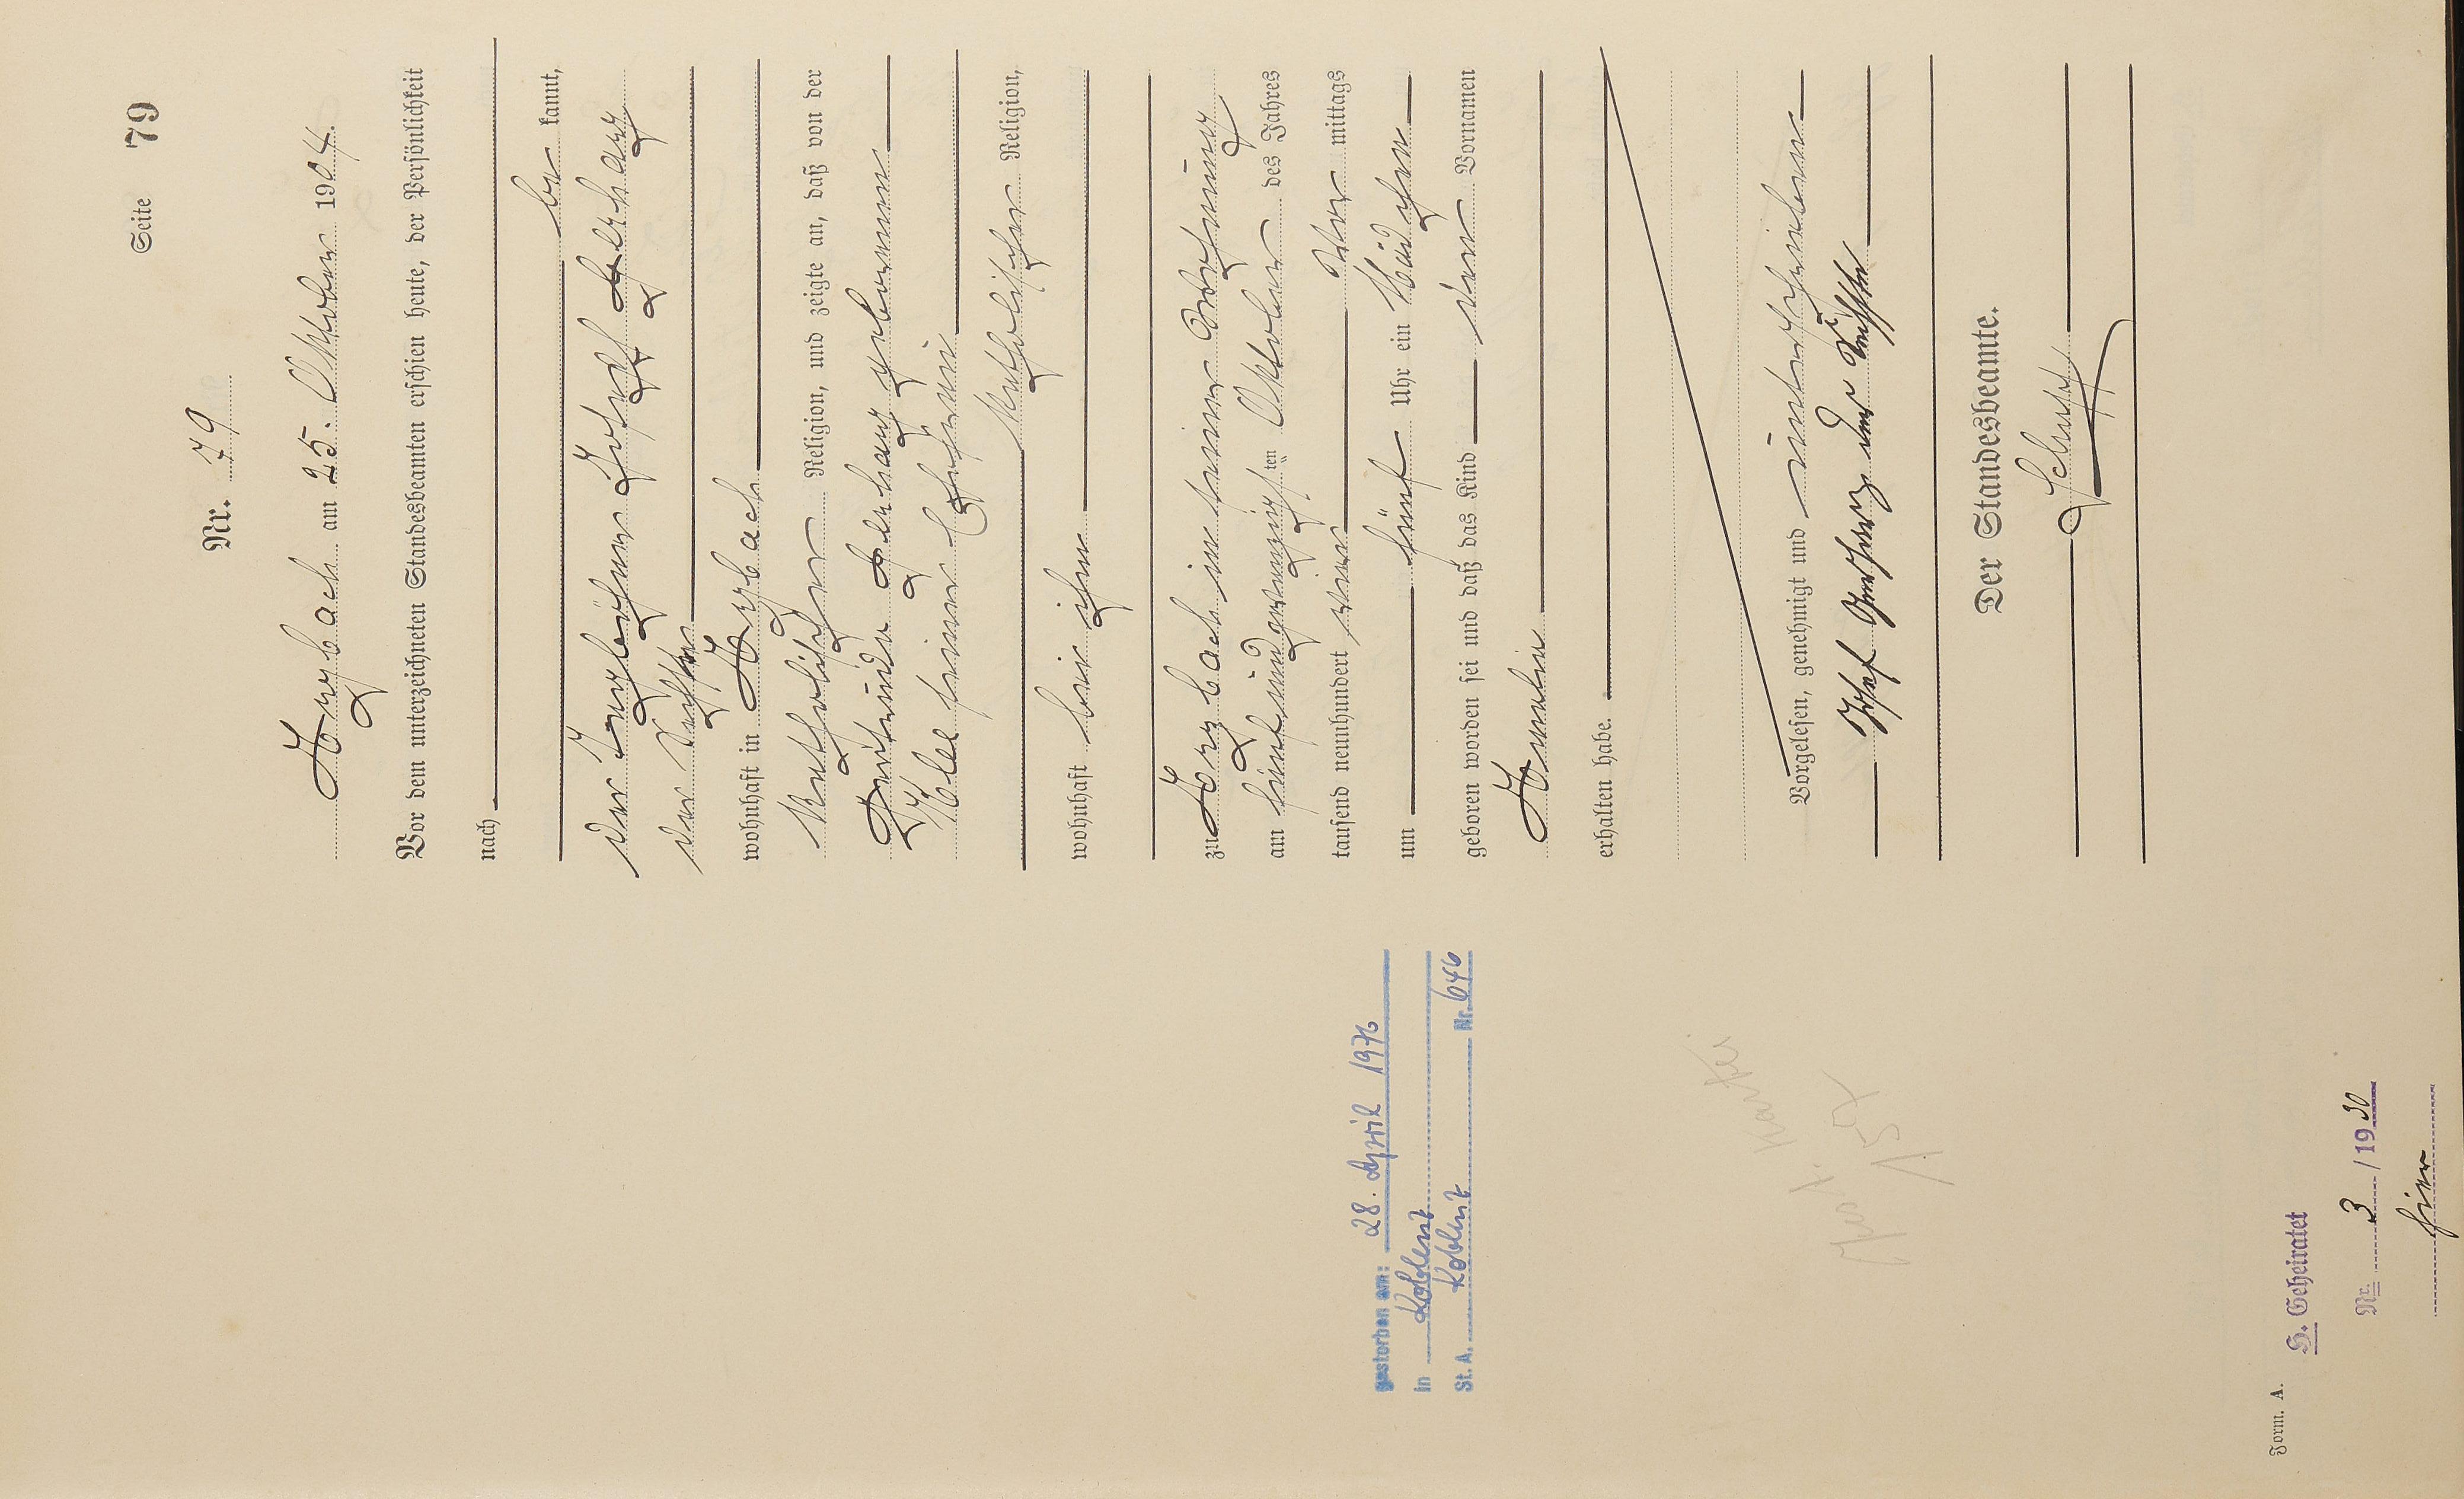 Seite 79
Nr. 79
Arzbach am 25. Oktober 1904.
Vor dem unterzeichneten Standesbeamten erschien heute, der Persönlichkeit
nach
be kannt,
der Taglöhner Josef Gerharz
der
wohnhaft in Arzbach
katholischer Religion, und zeigte an, daß von der
Gertrude Gerharz geborenen
seiner Ehefrau
katholischer Religion,
wohnhaft bei ihm
zu Arzbach in seiner Wohnung
am fünfundzwanzigsten Oktober des Jahres
tausend neunhundert vier Vor mittags
um fünf Uhr ein Mädchen
geboren worden sei und daß das Kind den Vornamen
Amalia
erhalten habe.
Vorgelesen, genehmigt und unterschrieben
Josef Gerharz der
Der Standesbeamte.
Schupp
gestorben am: 28. April 1976
in Koblenz
St. A. Koblenz Nr. 646
Karte
Form. A.
H. Geheiratet
Nr. 3 / 1930
hier